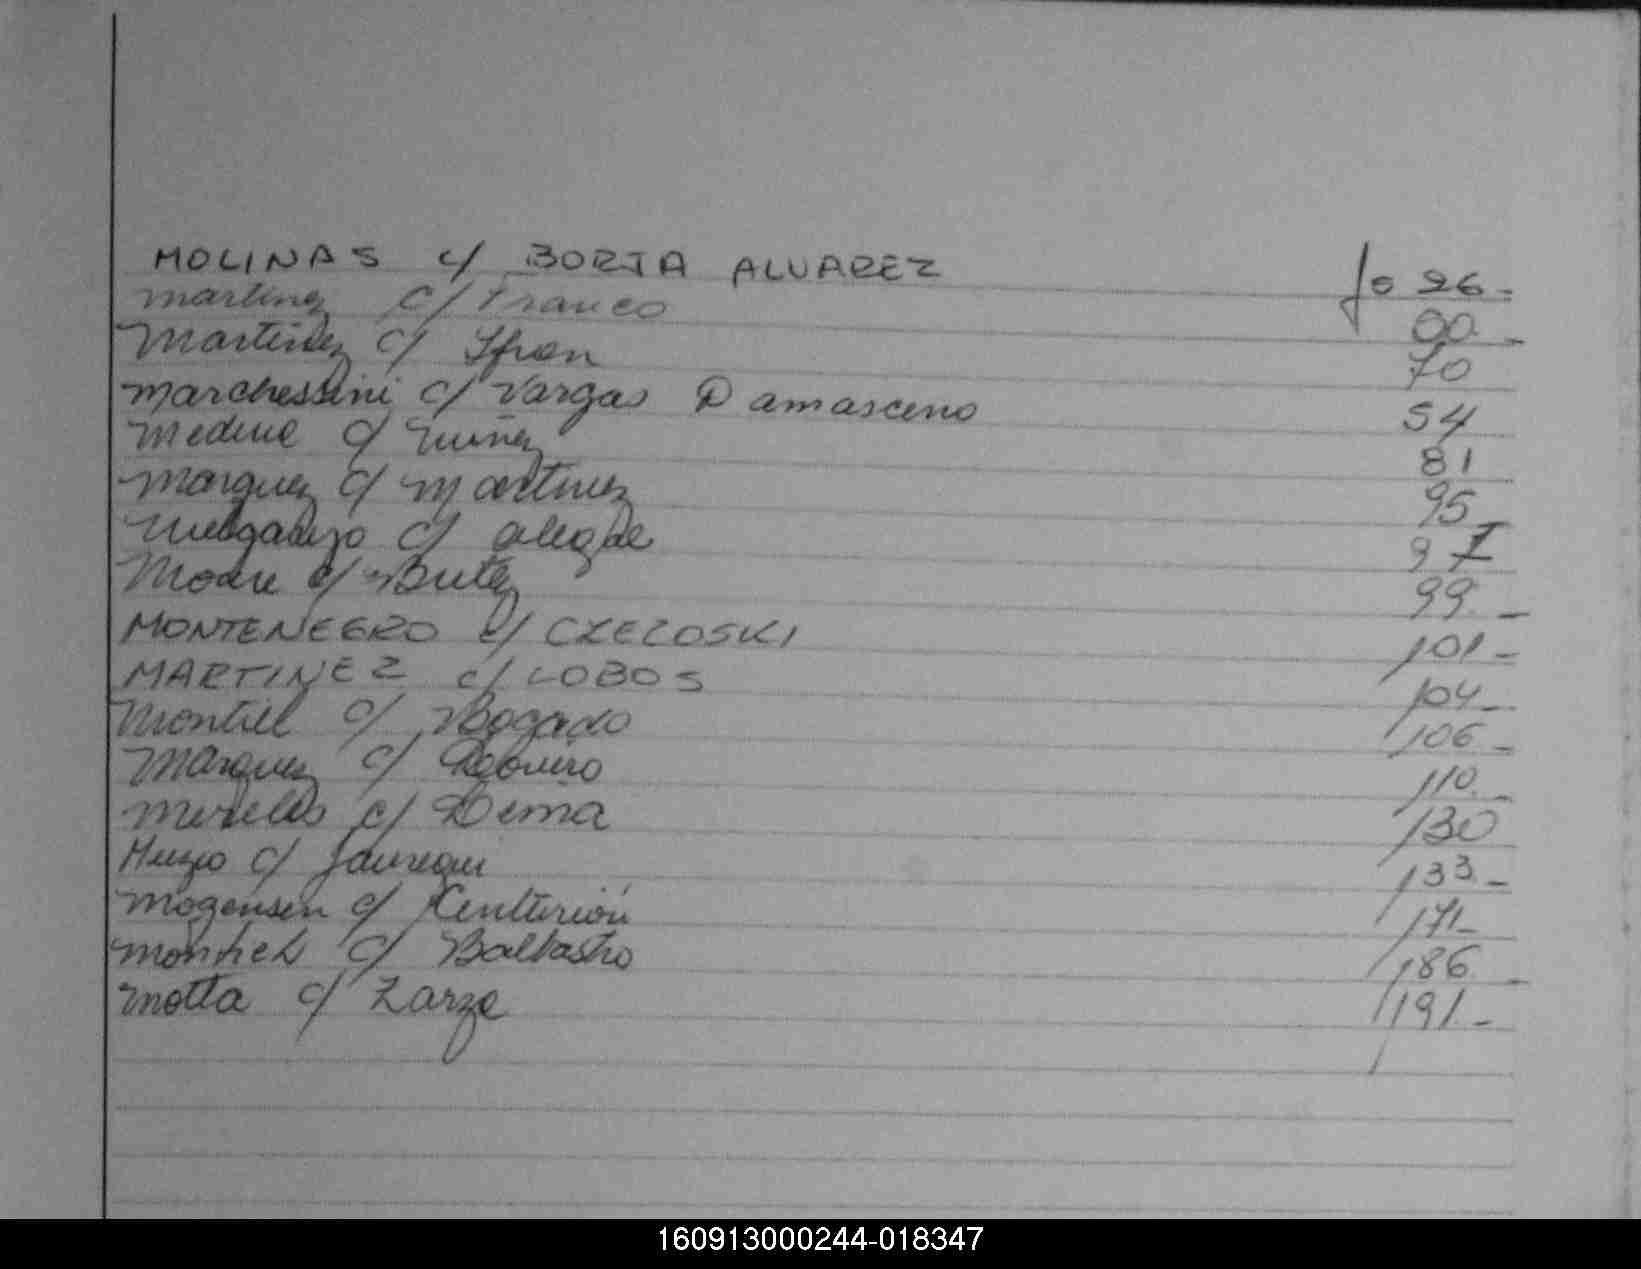 MOLINAS c/ BORJA ALVAREZ fo 26-
Martinez c/ Franco 00-
Martinez c/ Ifran 70
Marchessini c/ Vargas Damasceno 54
Medina c/ 81
Marquez c/ Martinez 95
c/ alegre 97
c/ 99-
MONTENEGRO c/ CZECOSKI 101-
MARTINEZ c/ LOBOS 104-
Montiel c/ Bogado 106-
Marquez c/ 110-
Mireles c/ 130
Muzio c/ Jauregui 133-
Mogensen c/ Centurión 171-
Montiel c/ Balbastro 186-
Motta c/ Zarze 191-
160913000244-018347